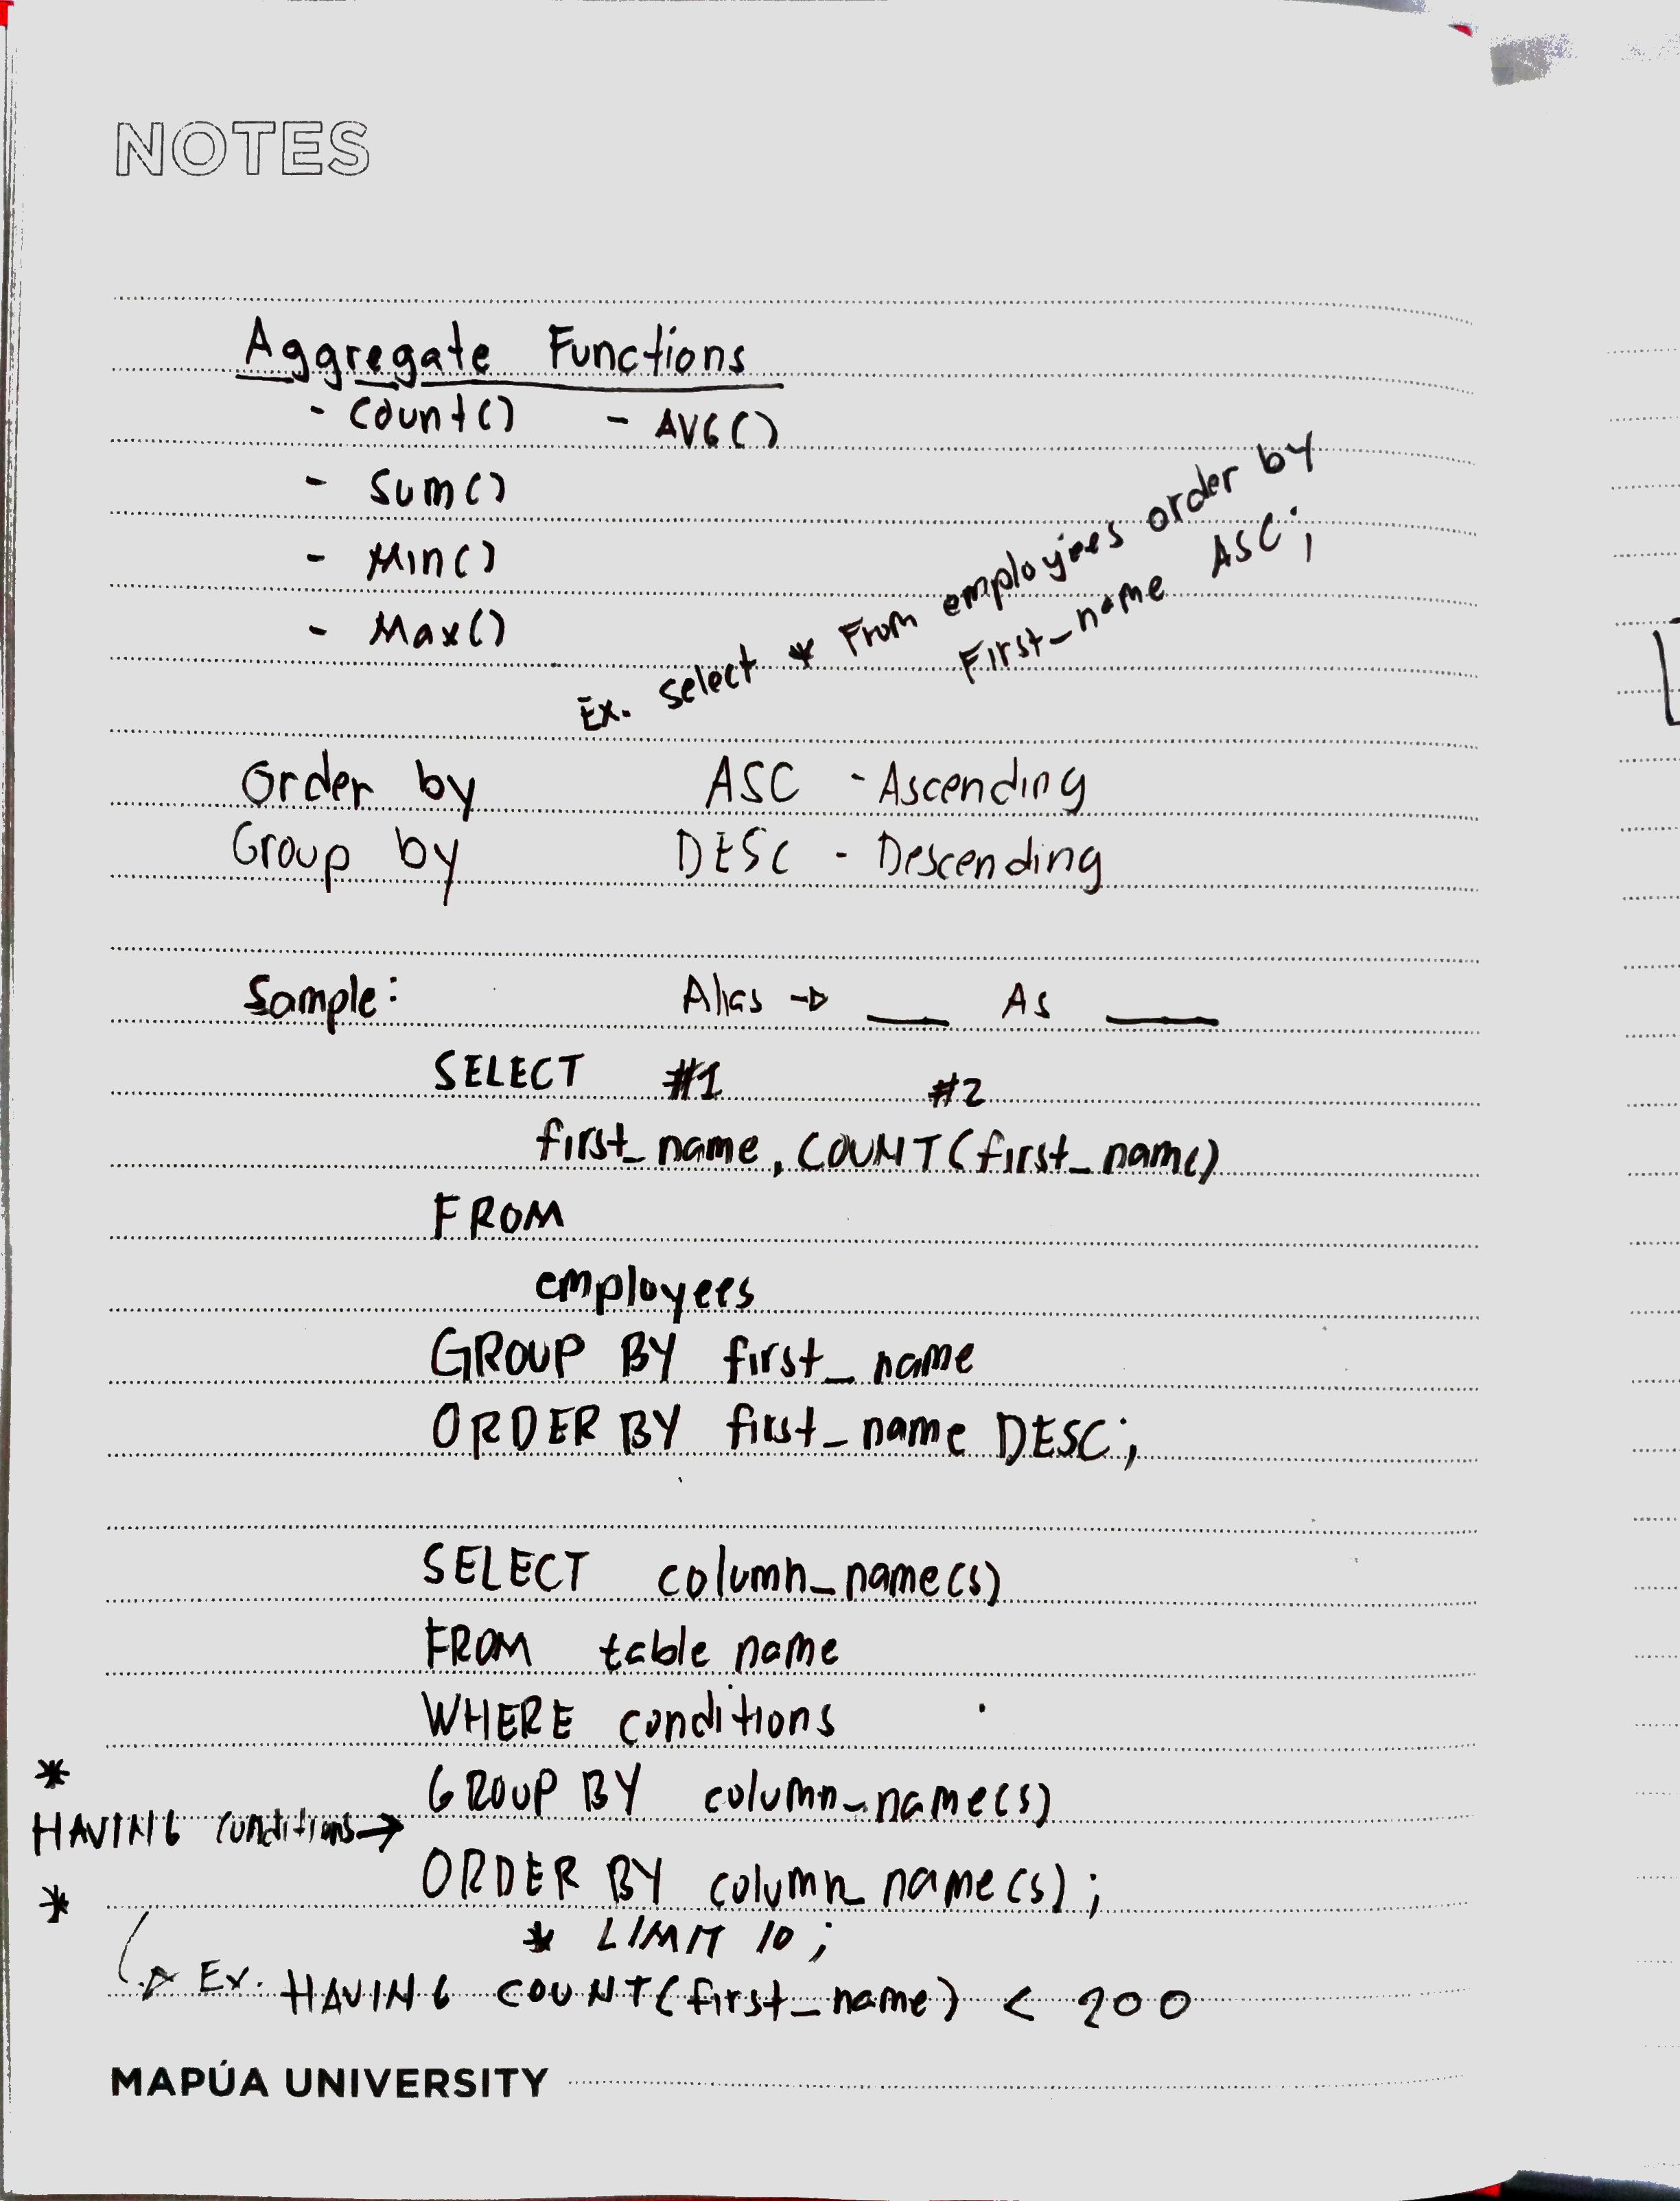 NOTES
Aggregate Functions
- Count() - AVG()
- Sum()
- Min()
- Max()
Ex. Select * From employees order by
First_name ASC;
Order by ASC - Ascending
Group by DESC - Descending
Sample: Alias → ___ As ___
SELECT #1 #2
first_name, COUNT(first_name)
FROM
employees
GROUP BY first_name
ORDER BY first_name DESC;
SELECT column_name(s)
FROM table name
WHERE conditions
*
GROUP BY column_name(s)
HAVING conditions →
ORDER BY column_name(s);
*
* LIMIT 10;
Ex. HAVING COUNT(first_name) < 200
MAPÚA UNIVERSITY